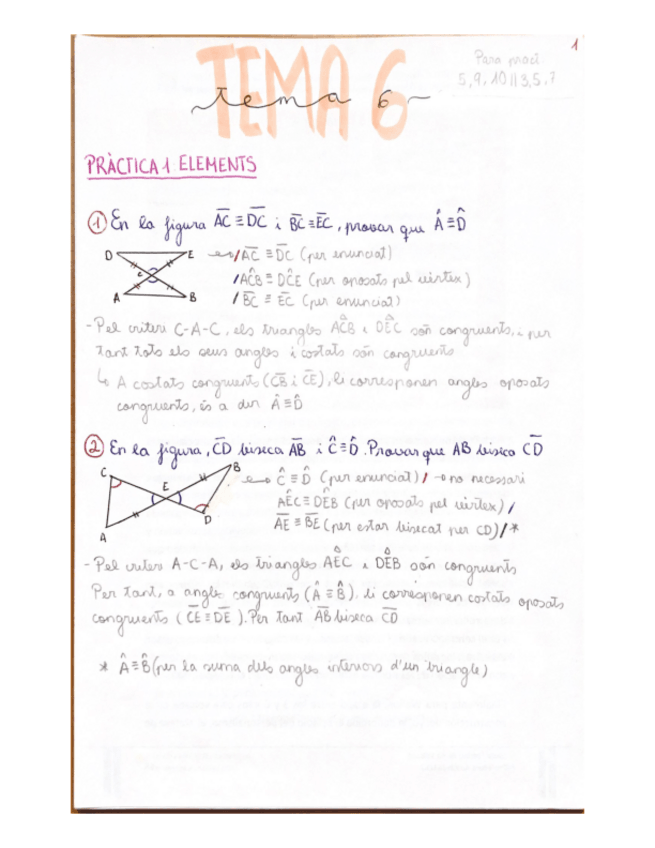 1
Para pract.
5, 9, 10 || 3, 5, 7
TEMA 6
tema 6
PRÀCTICA 1 ELEMENTS
① En la figura A̅C̅ ≡ D̅C̅ i B̅C̅ ≡ E̅C̅, provar que Â ≡ D̂
D E
C
A B
/ A̅C̅ ≡ D̅C̅ (per enunciat)
/ AĈB ≡ DĈE (per oposats pel vèrtex)
/ B̅C̅ ≡ E̅C̅ (per enunciat)
- Pel criteri C-A-C, els triangles ACB i DEC són congruents, i per
tant tots els seus angles i costats són congruents
↳ A costats congruents (C̅B̅ i C̅E̅), li corresponen angles oposats
congruents, és a dir Â ≡ D̂
② En la figura, C̅D̅ biseca A̅B̅ i Ĉ ≡ D̂. Provar que AB biseca C̅D̅
C B
E
D
A
Ĉ ≡ D̂ (per enunciat) / → no necessari
AÊC ≡ DÊB (per oposats pel vèrtex) /
A̅E̅ ≡ B̅E̅ (per estar bisecat per CD) / *
- Pel criteri A-C-A, els triangles AEC i DEB són congruents
Per tant, a angles congruents (Â ≡ B̂), li corresponen costats oposats
congruents (C̅E̅ ≡ D̅E̅). Per tant A̅B̅ biseca C̅D̅
* Â ≡ B̂ (per la suma dels angles interiors d'un triangle)